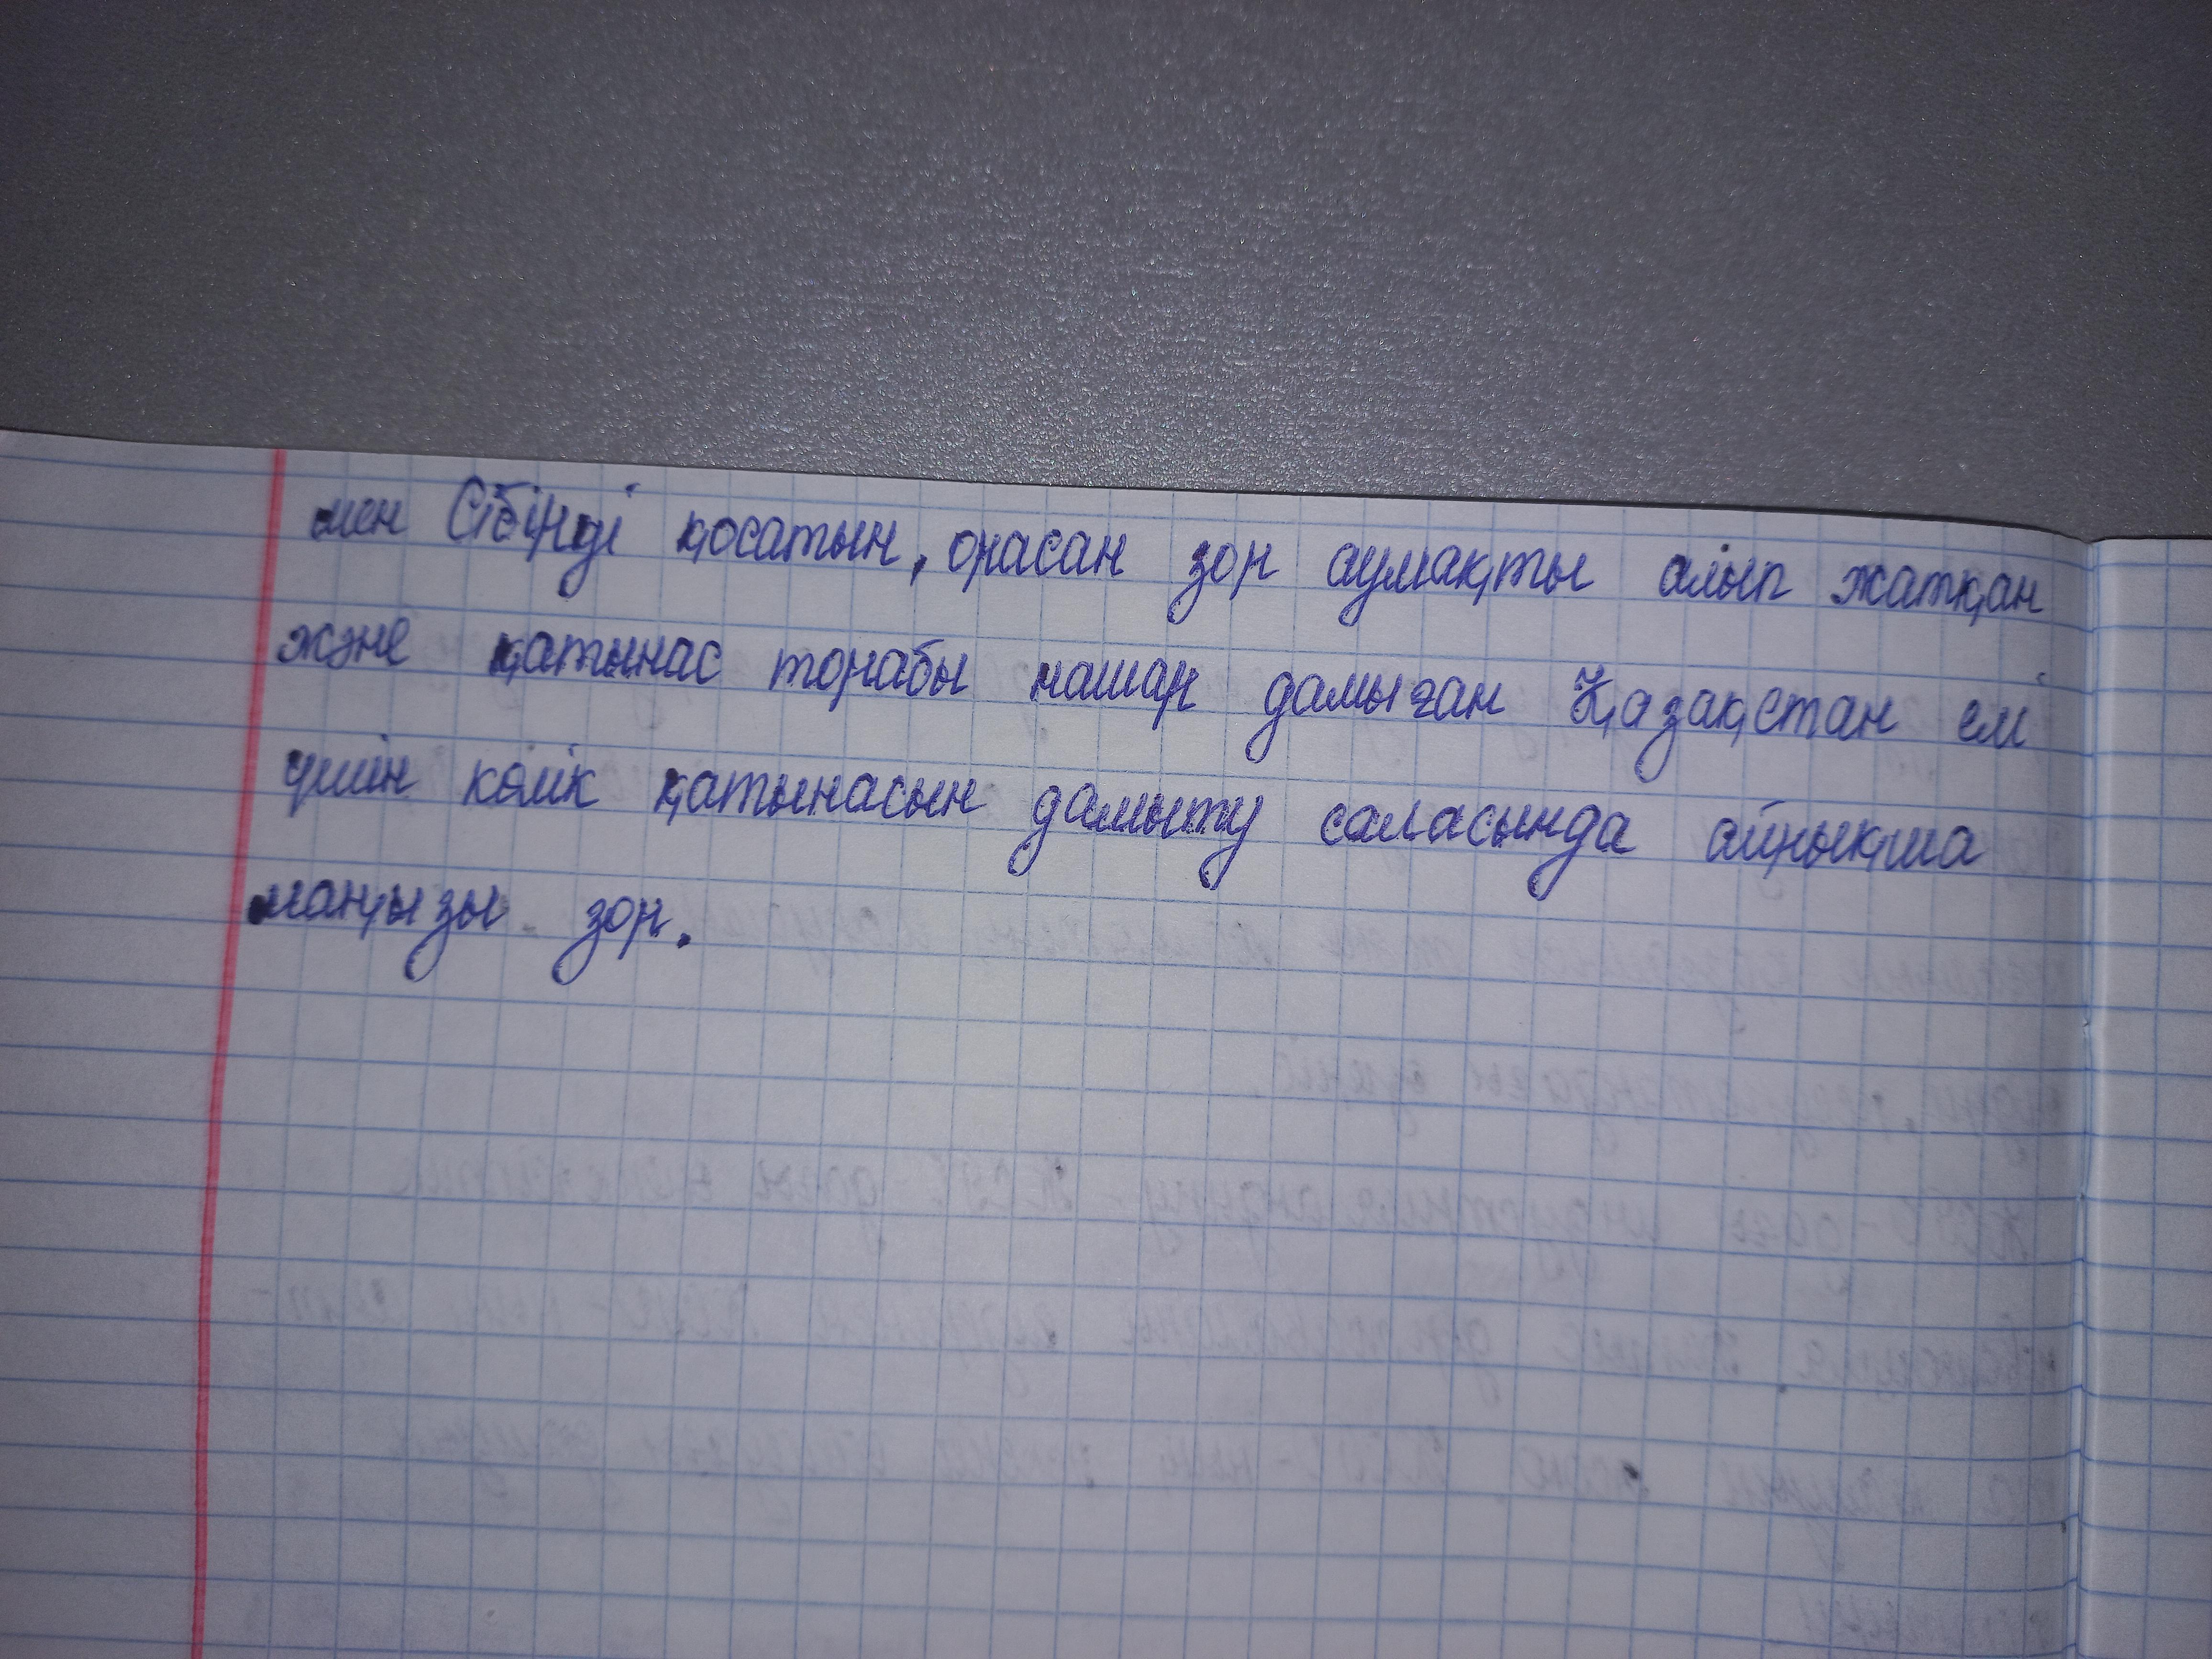 мен Сібірді қосатын, орасан зор аумақты алып жатқан
және қатынас торабы нашар дамыған Қазақстан елі
үшін көлік қатынасын дамыту саласында айрықша
маңызы зор.